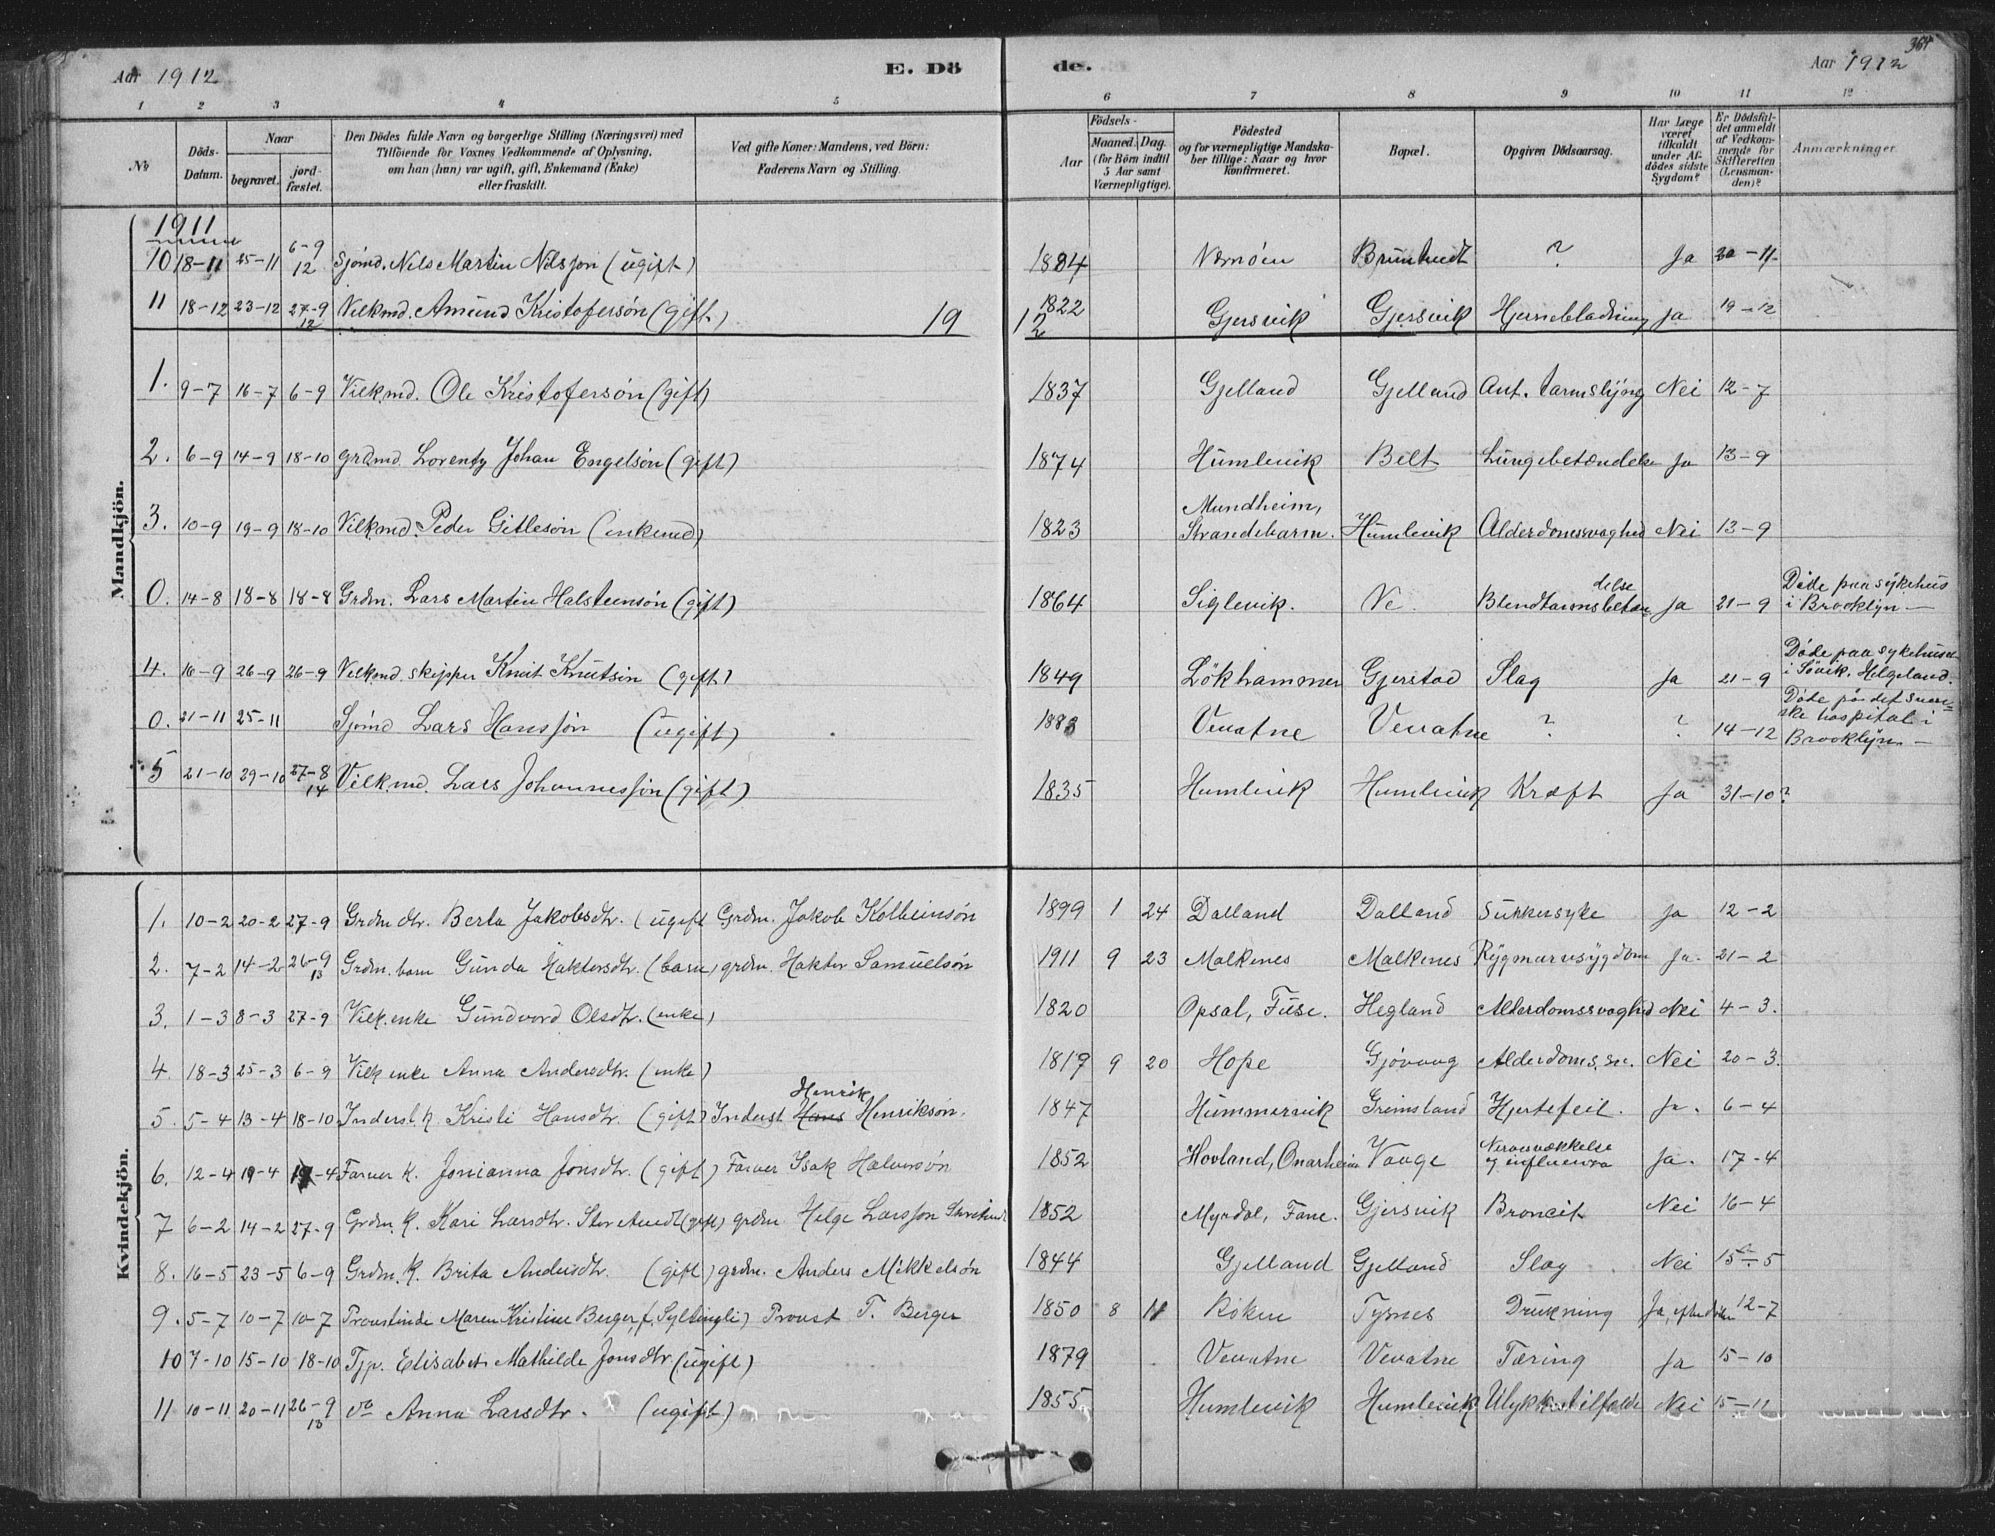 364
Aar 1912
E. Dö
de.
Aar 1912
1 2 3 4 5 6 7 8 9 10 11 12
No
Döds-Datum.
Naar
begravet.
jord-fæstet.
Den Dödes fulde Navn og borgerlige Stilling (Næringsvei) med
Tilföiende for Voxnes Vedkommende af Oplysning,
om han (hun) var ugift, gift, Enkemand (Enke)
eller fraskilt.
Ved gifte Koner: Mandens, ved Börn:
Faderens Navn og Stilling.
Födsels-
Aar
Maaned. Dag.
(for Börn indtil
5 Aar samt
Værnepligtige).
Födested
og for værnepligtige Mandska-
ber tillige: Naar og hvor
konfirmeret.
Bopæl.
Opgiven Dödsaarsag.
Har Læge
været
tilkaldt
under Af-
dödes sidste
Sygdom?
Er Dödsfal-
det anmeldt
af Vedkom-
mende for
Skifteretten
(Lensman-
den)?
Anmærkninger.
Mandkjön.
1911
10 18-11 25-11 6-9 12 Sjömd. Nils Martin Nilsson (ugift) 1884 Nærnöen ? Ja 20-11
11 18-12 23-12 27-9 12 Vilkmd. Amund Kristofersön (gift) 19 12 1822 Gjersvik Gjersvik Hjerneblödning Ja 19-12
1. 9-7 16-7 6-9 Vilkmd. Ole Kristofersön (gift) 1837 Gjelland Gjelland Ant. tarmslyng Nei 12-7
2. 6-9 14-9 18-10 grdmd. Lorentz Johan Engelsön (gift) 1874 Humlevik Belt Lungebetændelse Ja 13-9
3. 10-9 19-9 18-10 Vilkmd. Peder Gitlesön (enkemd) 1823 Mundheim, Strandebarm. Humlevik Alderdomssvaghed Nei 13-9
0. 14-8 18-8 18-8 Grdm. Lars Martin Halsteensön (gift) 1864 Siglevik. Ve. Blendtarmsbetændelse Ja 21-9 Döde paa sykehus
i Brooklyn —
4. 16-9 26-9 26-9 Vilkmd. skipper Knut Knutsön (gift) 1849 Lökhammer Gjerstad Slag Ja 21-9 Döde paa sykehuset
i Sövik, Helgeland.
0. 21-11 25-11 Sjömd Lars Hanssön (ugift) 1883 Vevatne Vevatne ? ? 14-12 Döde på det norske hospital i
Brooklyn. —
5 21-10 29-10 27-8 14 Vilkmd. Lars Johannessön (gift) 1835 Humlevik Humlevik Kræft Ja 31-10 ?
Kvindekjön.
1. 10-2 20-2 27-9 Grdm dtr. Berta Jakobsdtr. (ugift Grdm. Jakob Kolbeinsön 1899 1 24 Dalland Dalland Sukkersyke Ja 12-2
2. 7-2 14-2 26-9 13 Grdm. barn Gunda Haktorsdtr. (barn) grdm. Haktor Samuelsön 1911 9 23 Malkenes Malkenes Rygmarvsygdom Ja. 21-2
3. 1-3 8-3 27-9 Vilk. enke Gundvord Olsdtr. (enke) 1820 Opsal, Fuse. Hegland Alderdomssvaghed Nei 4-3.
4. 18-3 25-3 6-9 Vilk enke Anna Andersdtr. (enke) 1819 9 20 Hope Gjövaag Alderdoms.sv. Nei 20-3.
5. 5-4 13-4 18-10 Inderst. k. Kristi Hansdtr. (gift) Inderst Hans Henrik Henriksön. 1847 Hummervik Grimsland Hjertefeil. Ja. 6-4
6. 12-4 19-4 19-4 Farver k. Jonianna Jonsdtr. (gift) Farver Isak Halversön 1852 Hovland, Onarheim Vaage Nervesvækkelse
og influenza Ja. 17-4
7 6-2 14-2 27-9 Grdm. k. Kari Larsdtr. (gift) grdm Helge Larsson 1852 Myrdal, Fane. Gjersvik Broncit Nei 16-4
8. 16-5 23-5 6-9 Grdm. k. Brita Andersdtr. (gift) grdm. Anders Mikkelsön 1844 Gjelland Gjelland Slag Nei 15-5
9. 5-7 10-7 10-7 Provstinde Maren Kristine Berger, f. Provst T. Berger 1850 8 11 Röken Tysnes Drukning Ja, efter döden 12-7
10 7-10 15-10 18-10 Tjp. Elisabet Mathilde Jonsdtr (ugift) 1879 Vevatne Vevatne Tæring Ja 15-10
11 10-11 20-11 26-9 13 do Anna Larsdtr. (ugift) 1855 Humlevik Humlevik Ulykkestilfælde Nei 15-11